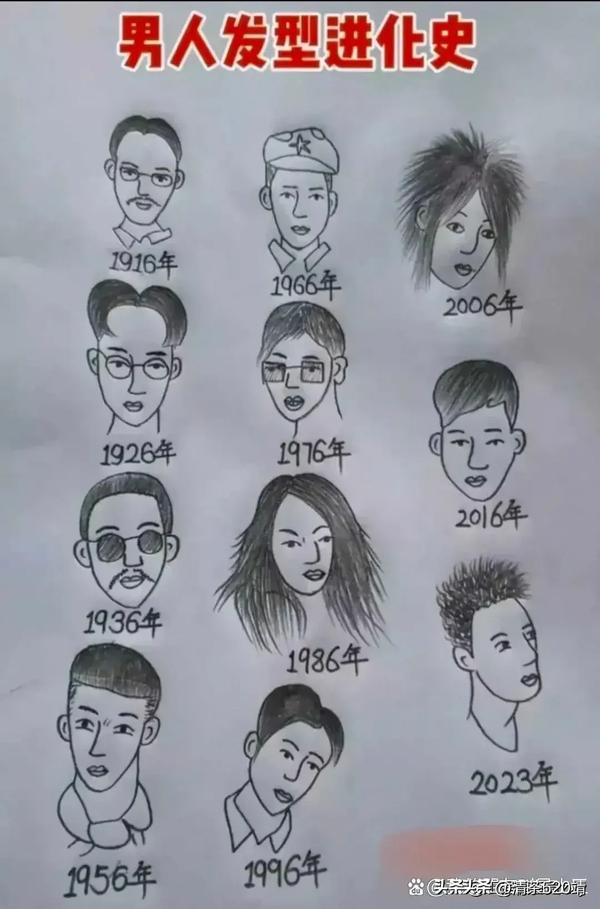 男人发型进化史
1916年
1926年
1936年
1956年
1966年
1976年
1986年
1996年
2006年
2016年
2023年
头条 @清茶520靖